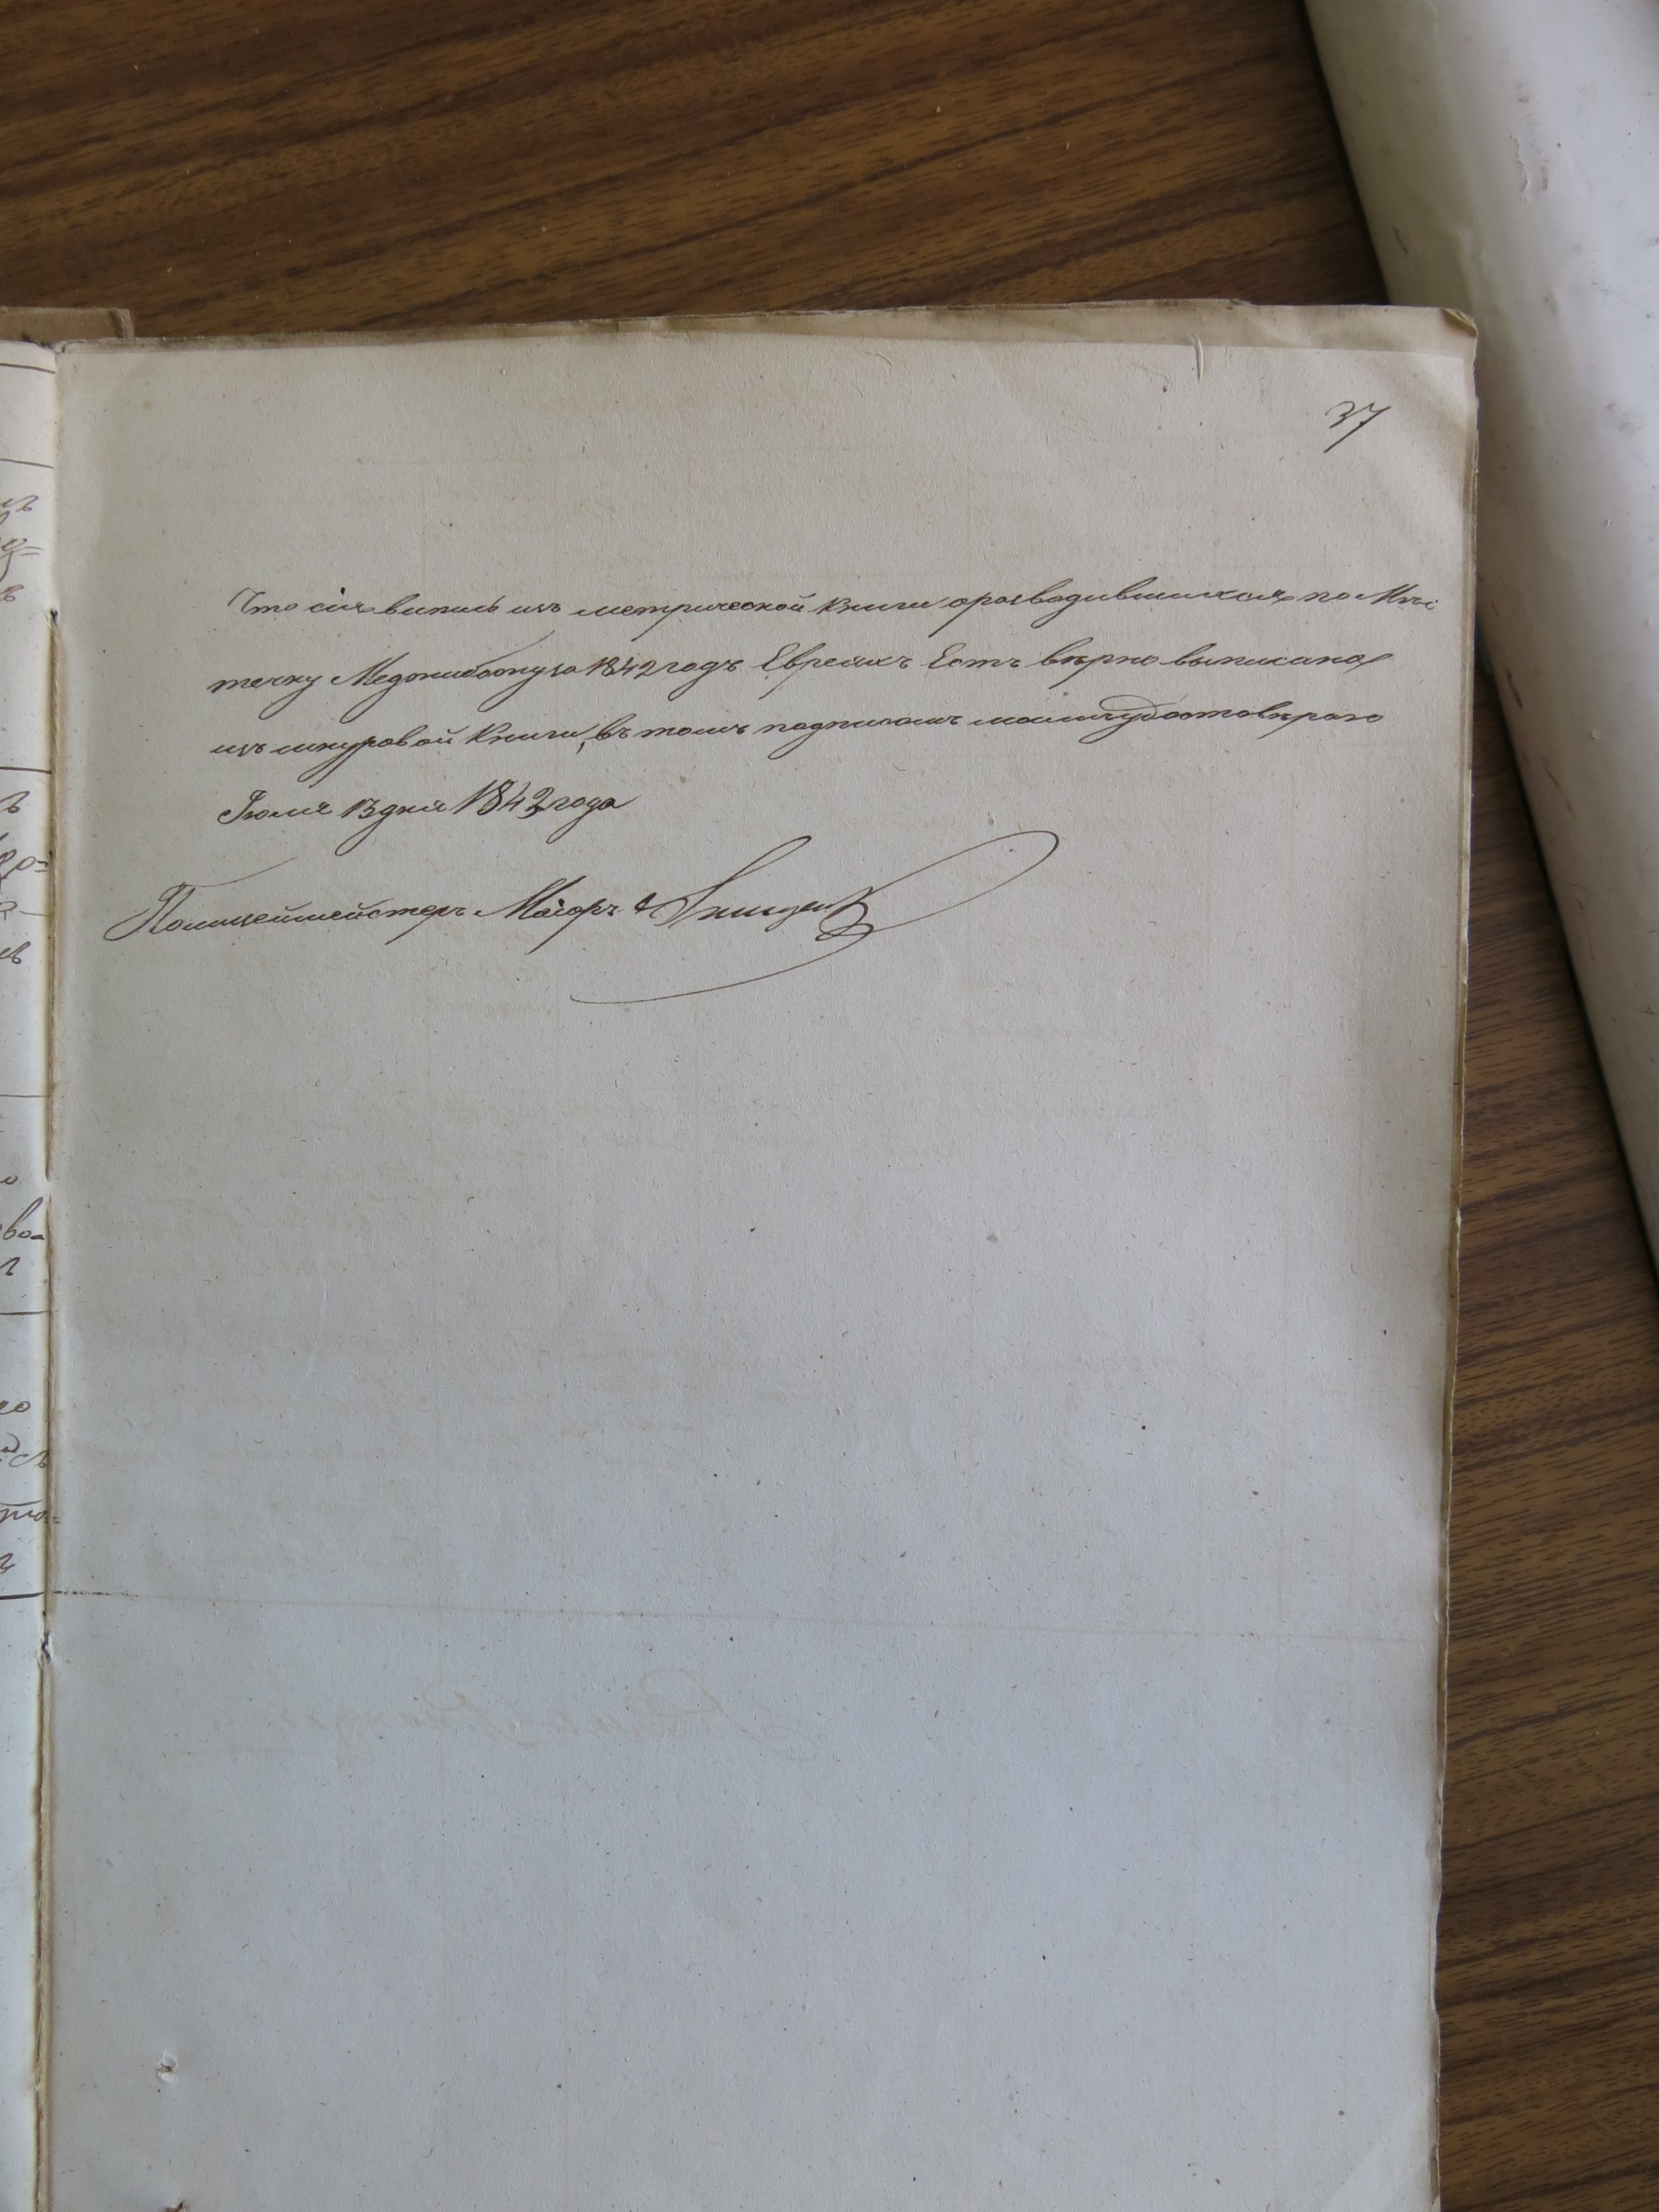 37
Что сія випись изъ метрической книги оразводившихся по Мѣс
течку Меджибожу за 1842 годъ Евреяхъ Есть вѣрно выписана
изъ шнуровой книги, въ томъ подписомъ моимъ удостовѣряю
Іюля 13 дня 1843 года
Полицеймейстеръ Маіоръ